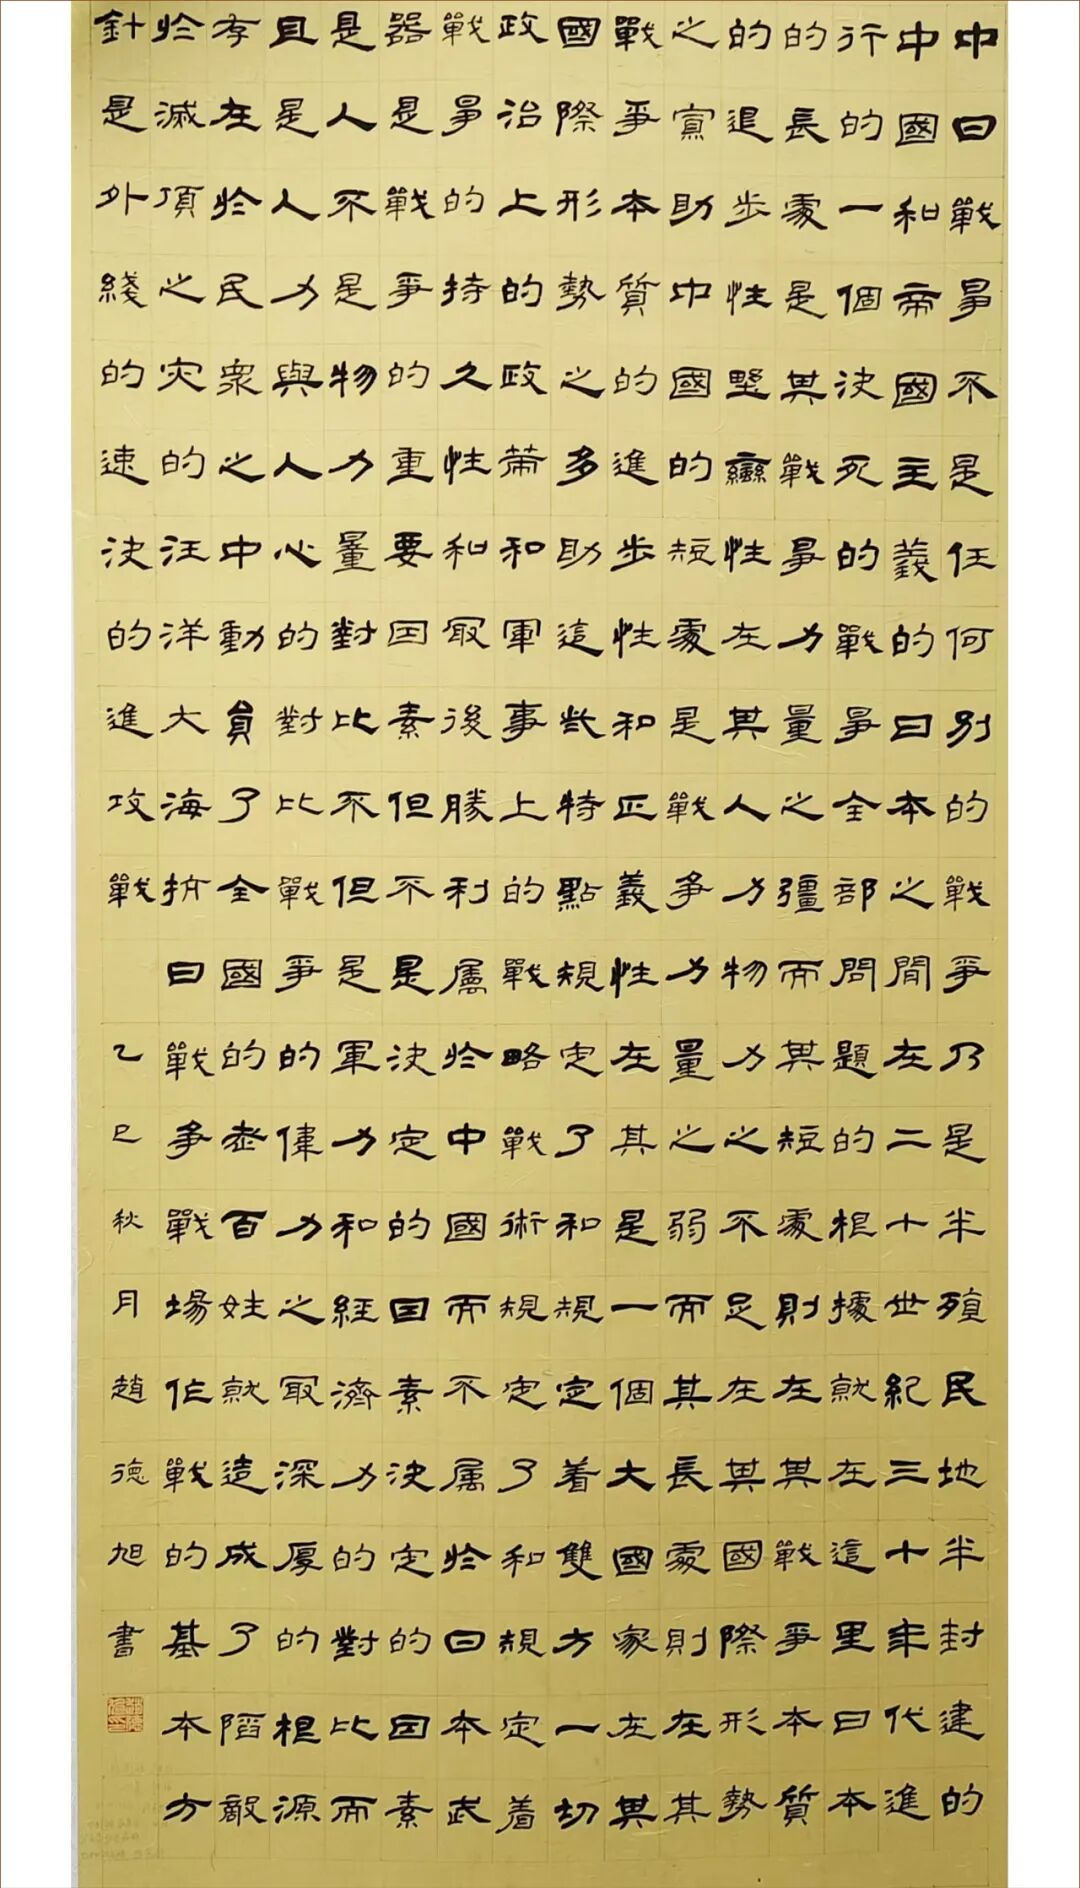 中日戰爭不是任何別的戰爭乃是半殖民地半封建的
中國和帝國主義的日本之間在二十世紀三十年代進
行的一個決死的戰爭全部問題的根據就在這里日本
的長處是其戰爭力量之彊而其短處則在其戰爭本質
的退步性野蠻性在其人力物力之不足在其國際形勢
之寡助中國的短處是戰爭力量之弱而其長處則在其
戰爭本質的進步性和正義性在其是一個大國家在其
國際形勢之多助這些特點規定了和規定着雙方一切
政治上的政策和軍事上的戰略戰術規定了和規定着
戰爭的持久性和最後勝利屬於中國而不屬於日本武
器是戰爭的重要因素但不是決定的因素決定的因素
是人不是物力量對比不但是軍力和經濟力的對比而
且是人力與人心的對比戰爭的偉力之最深厚的根源
存在於民衆之中動員了全國的老百姓就造成了陷敵
於滅頂之灾的汪洋大海抗日戰爭戰場作戰的基本方
針是外綫的速決的進攻戰 乙巳秋月趙德旭書